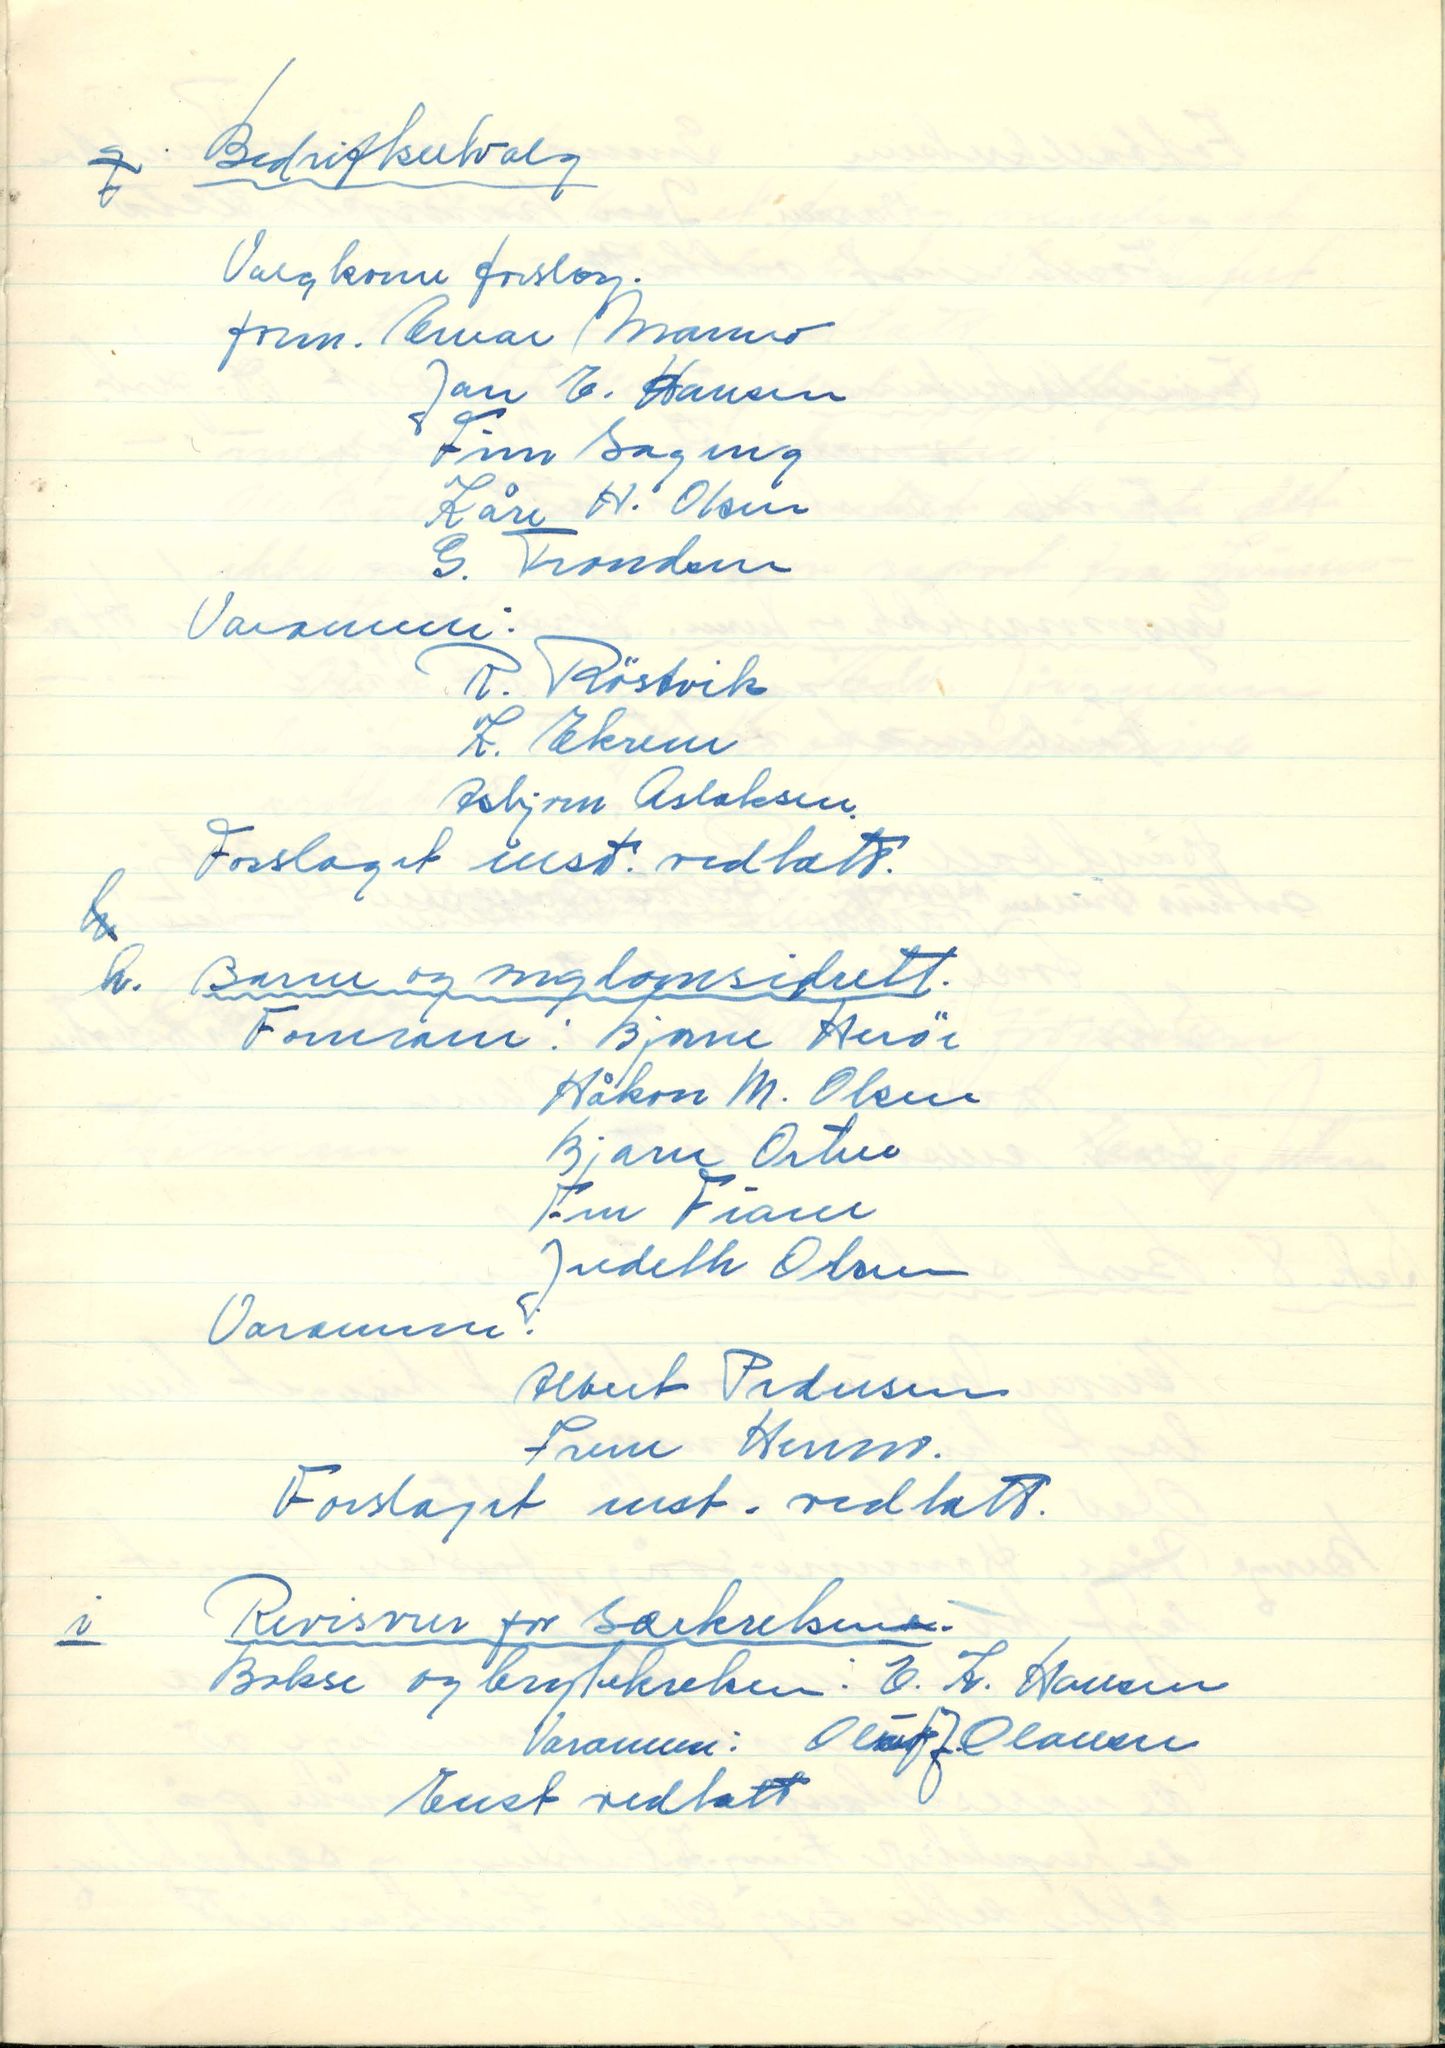 g. Bedriftsutvalg
Valgkom forslag.
form. Einar
Jan E. Hansen
Finn
Kåre H. Olsen
G. Trondsen
Varamenn:
R. Röstvik
K. Ekrem
Asbjørn Aslaksen.
Forslaget enst. vedtatt.
h. Barne og ungdomsidrett.
Formann: Bjarne Heröe
Håkon M. Olsen
Bjarne
Finn
Judeth Olsen
Varamenn:
Albert Pedersen
Forslaget enst. vedtatt.
i Revisorer for Særkretsene.
Bokse og brytekretsen: E. K. Hansen
Varamenn: Olaf J. Olaussen
Enst vedtatt